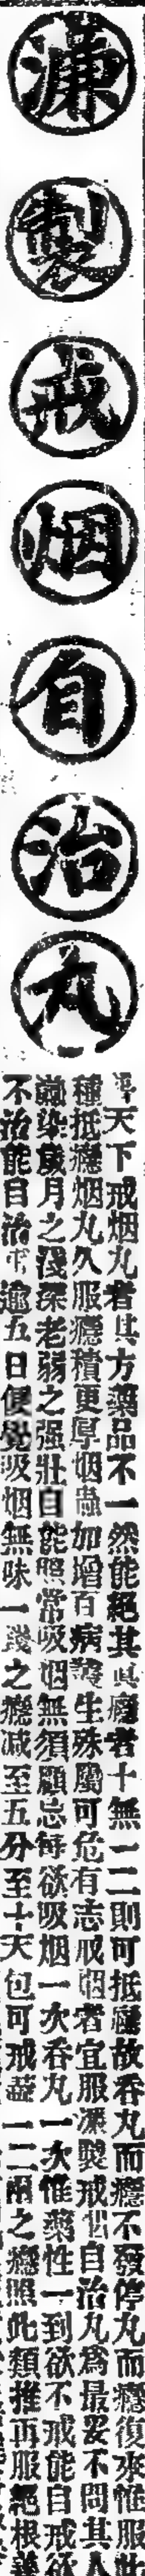 濂製戒烟自治丸
天下戒烟丸者其方藥品不一然能絕其真癮者十無一二則可抵癮故吞丸而癮不發停丸而癮復來惟服此
種抵癮烟丸久服癮積更厚烟蟲加增百病叢生殊屬可危有志戒烟者宜服濂製戒烟自治丸爲最妥不問其人
染歲月之淺深老弱之强壯自能照常吸烟無須顧忌每欲吸烟一次吞丸一次惟藥性一到欲不戒能自戒欲
不治能自治 逾五日便覺吸烟無味一錢之癮减至五分至十天包可戒 一二兩之癮照此類推再服絕根